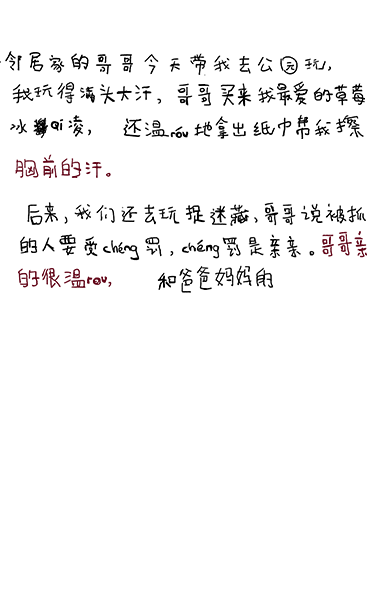 邻居家的哥哥今天带我去公园玩,
我玩得满头大汗,哥哥买来我最爱的草莓
冰qi凌,还温róu地拿出纸巾帮我擦
胸前的汗。
后来,我们还去玩捉迷藏,哥哥说被抓
的人要受chéng罚,chéng罚是亲亲。哥哥亲
的很温rou,和爸爸妈妈的